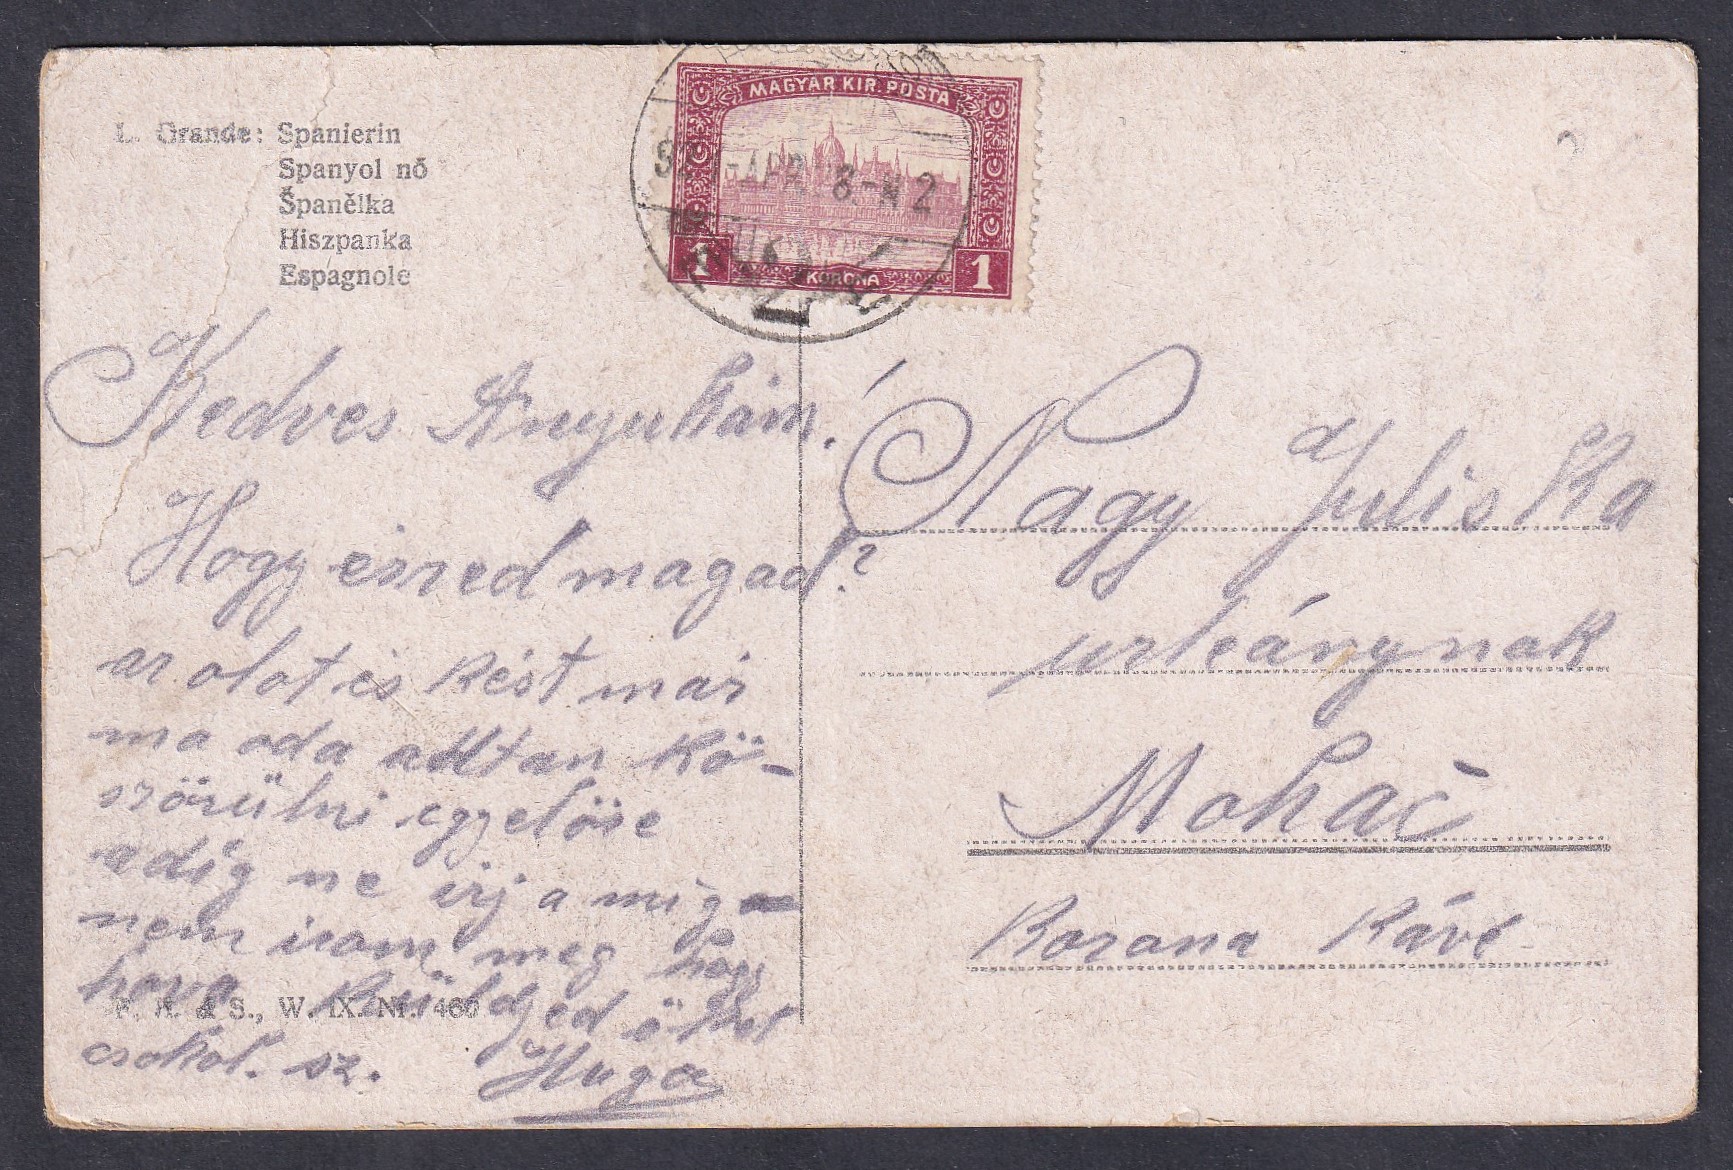 L. Grande: Spanierin
Spanyol nő
Španělka
Hiszpanka
Espagnole
MAGYAR KIR. POSTA
1 KORONA 1
-APR 8.-N2
Kedves Anyukám!
Hogy érzed magad?
az olot és kést már
ma oda adtan kö-
szörülni egyelöre
adig ne irj a mig
nem irom meg hogy
hova küldjed ölel
csokol. sz. Huga
F. H. & S., W. IX. Nr. 460
Nagy Juliska
urleánynak
Mohač
Korana Kávé